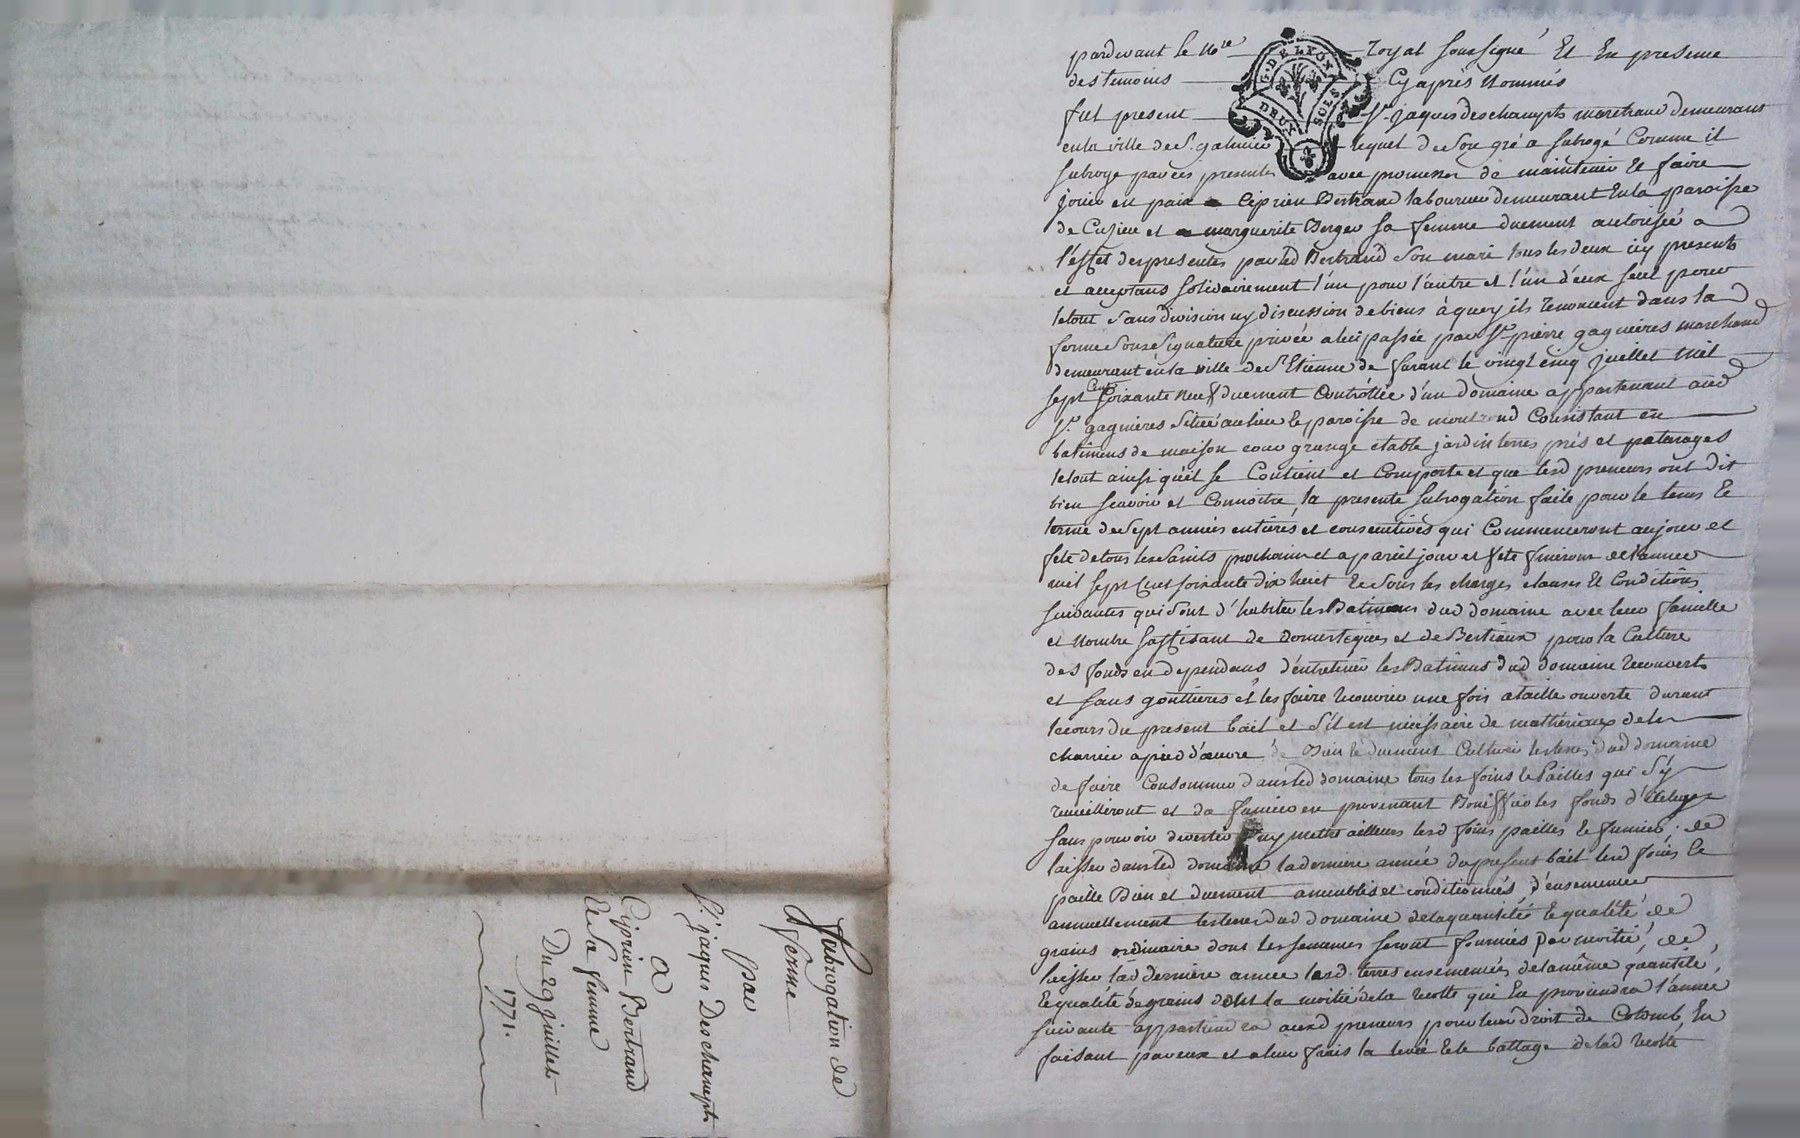 pardevant le No.re royal soussigné Et En presence
des temoins Cy après Nommés
G. DE LYON
DEUX SOLS
fut present Sr. jaques deschampts marchand demeurant
en la ville de St. galmier lequel de son gré a subrogé Comme il
subroge par ces presentes avec promesse de maintenir Et faire
jouir en paix Ciprien Bertrand laboureur demeurant En la paroisse
de Cuzieu et marguerite Berger sa femme duement autorisée a
l'effet des presentes par led Bertrand son mari tous les deux icy presents
et acceptans solidairement l'un pour l'autre et l'un d'eux seul pour
le tout sans division ny discussion de biens à quoy ils renoncent dans la
ferme sous signature privée a lui passée par Sr. pierre gagnières marchand
demeurant en la ville de St Etienne de furant le vingt cinq juillet mil
sept Cent soixante neuf duement Controllée d'un domaine appartenant aud
Sr. gagnières situé au lieu Et paroisse de montrond Consistant en
batimens de maison cour grange etable jardin terres prés et paturages
le tout ainsi qu'il se Contient et Comporte et que lesd preneurs ont dit
bien scavoir et Connoitre, la presente subrogation faite pour le tems Et
terme de sept années entières et consecutives qui Commenceront au jour et
fête de tous les Saints prochain et a pareil jour et fete finiront de l'année
mil sept Cent soixante dix huit Et sous les charges clauses Et Conditions
suivantes qui sont d'habiter les Batimens dud domaine avec leur famille
et Nombre suffisant de domestiques et de Bestiaux pour la Culture
des fonds en dependans d'entretenir les Batimens dud domaine recouverts
et sans gouttières et les faire recouvrir une fois a taille ouverte durant
le cours du present bail et s'il est nécéssaire de mathériaux de les
charrier a pied d'œuvre de Bien Et duement Cultiver les terres dud domaine
de faire Consommer dans led domaine tous les foins Et Pailles qui s'y
recueilliront et du fumier en provenant Boniffier les fonds d'icelluy
sans pouvoir divertir ny mettre ailleurs lesd foins pailles Et fumier; de
laisser dans led domaine la derniere année du present bail lesd foins Et
paille Bien et duement ameublis et conditionnés d'ensemencer
annuellement les terres dud domaine de la quantité Et qualité de
grains ordinaire dont les semances seront fournies Par moitié, de
laisser lad dernière année lesd. terres ensemencées de la même quantité,
Et qualité de grains dont la moitié de la recolte qui En proviendra l'année
suivante appartiendra auxd preneurs pour leur droit de Colomb, En
faisant par eux et a leur frais la levée Et le battage de lad recolte
Subrogation de
ferme
par
Sr. jaques Deschampts
a
Ciprien Bertrand
Et sa femme
Du 29 juillet
1771.